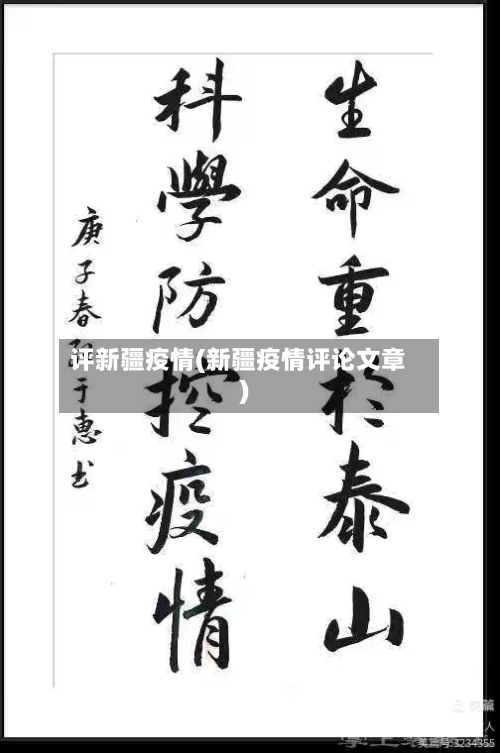 生命重於泰山
科學防控疫情
庚子春于惠书
评新疆疫情(新疆疫情评论文章
)
美篇